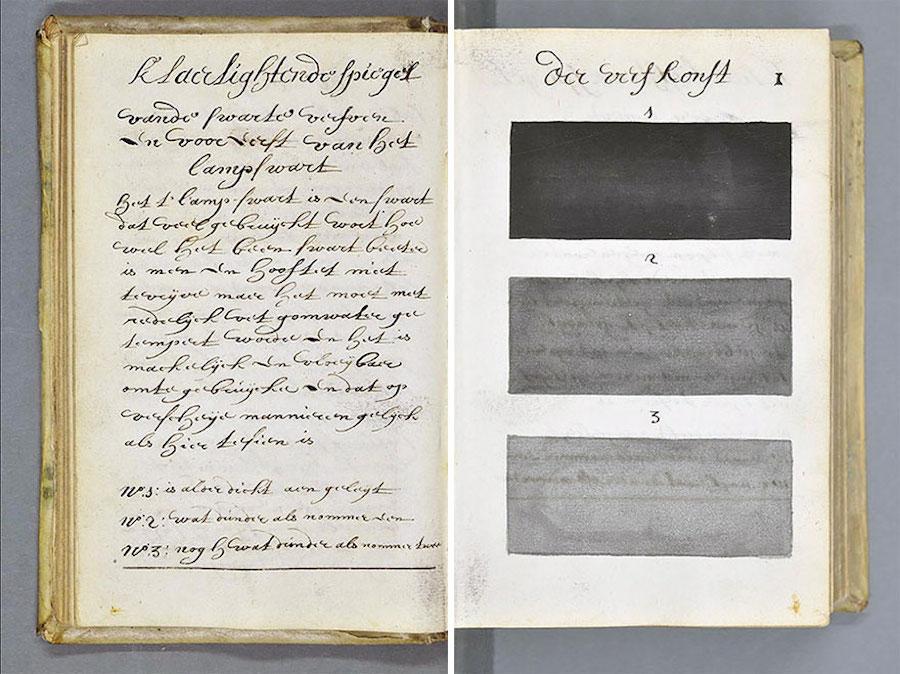 klaerlightende spiegel
vande swarte verfven
en voor eerst van het
lampswart
Het t' lamp-swart is een swart
dat veel gebruijckt wort hoe
wel het been swart beeter
is men en hooftet niet
te vrijve maer het moet met
redelijck vet gomwater ge
tempert worde en het is
mackelijck en vloeijbaer
omte gebruijcke en dat op
verscheije mannieren gelijck
als hier tesien is
No.1: is alder dickt aen geleijt
No.2: wat dunder als nommer een
No.3: nogh wat dunder als nommer twee
der verfkonst 1
1
2
3